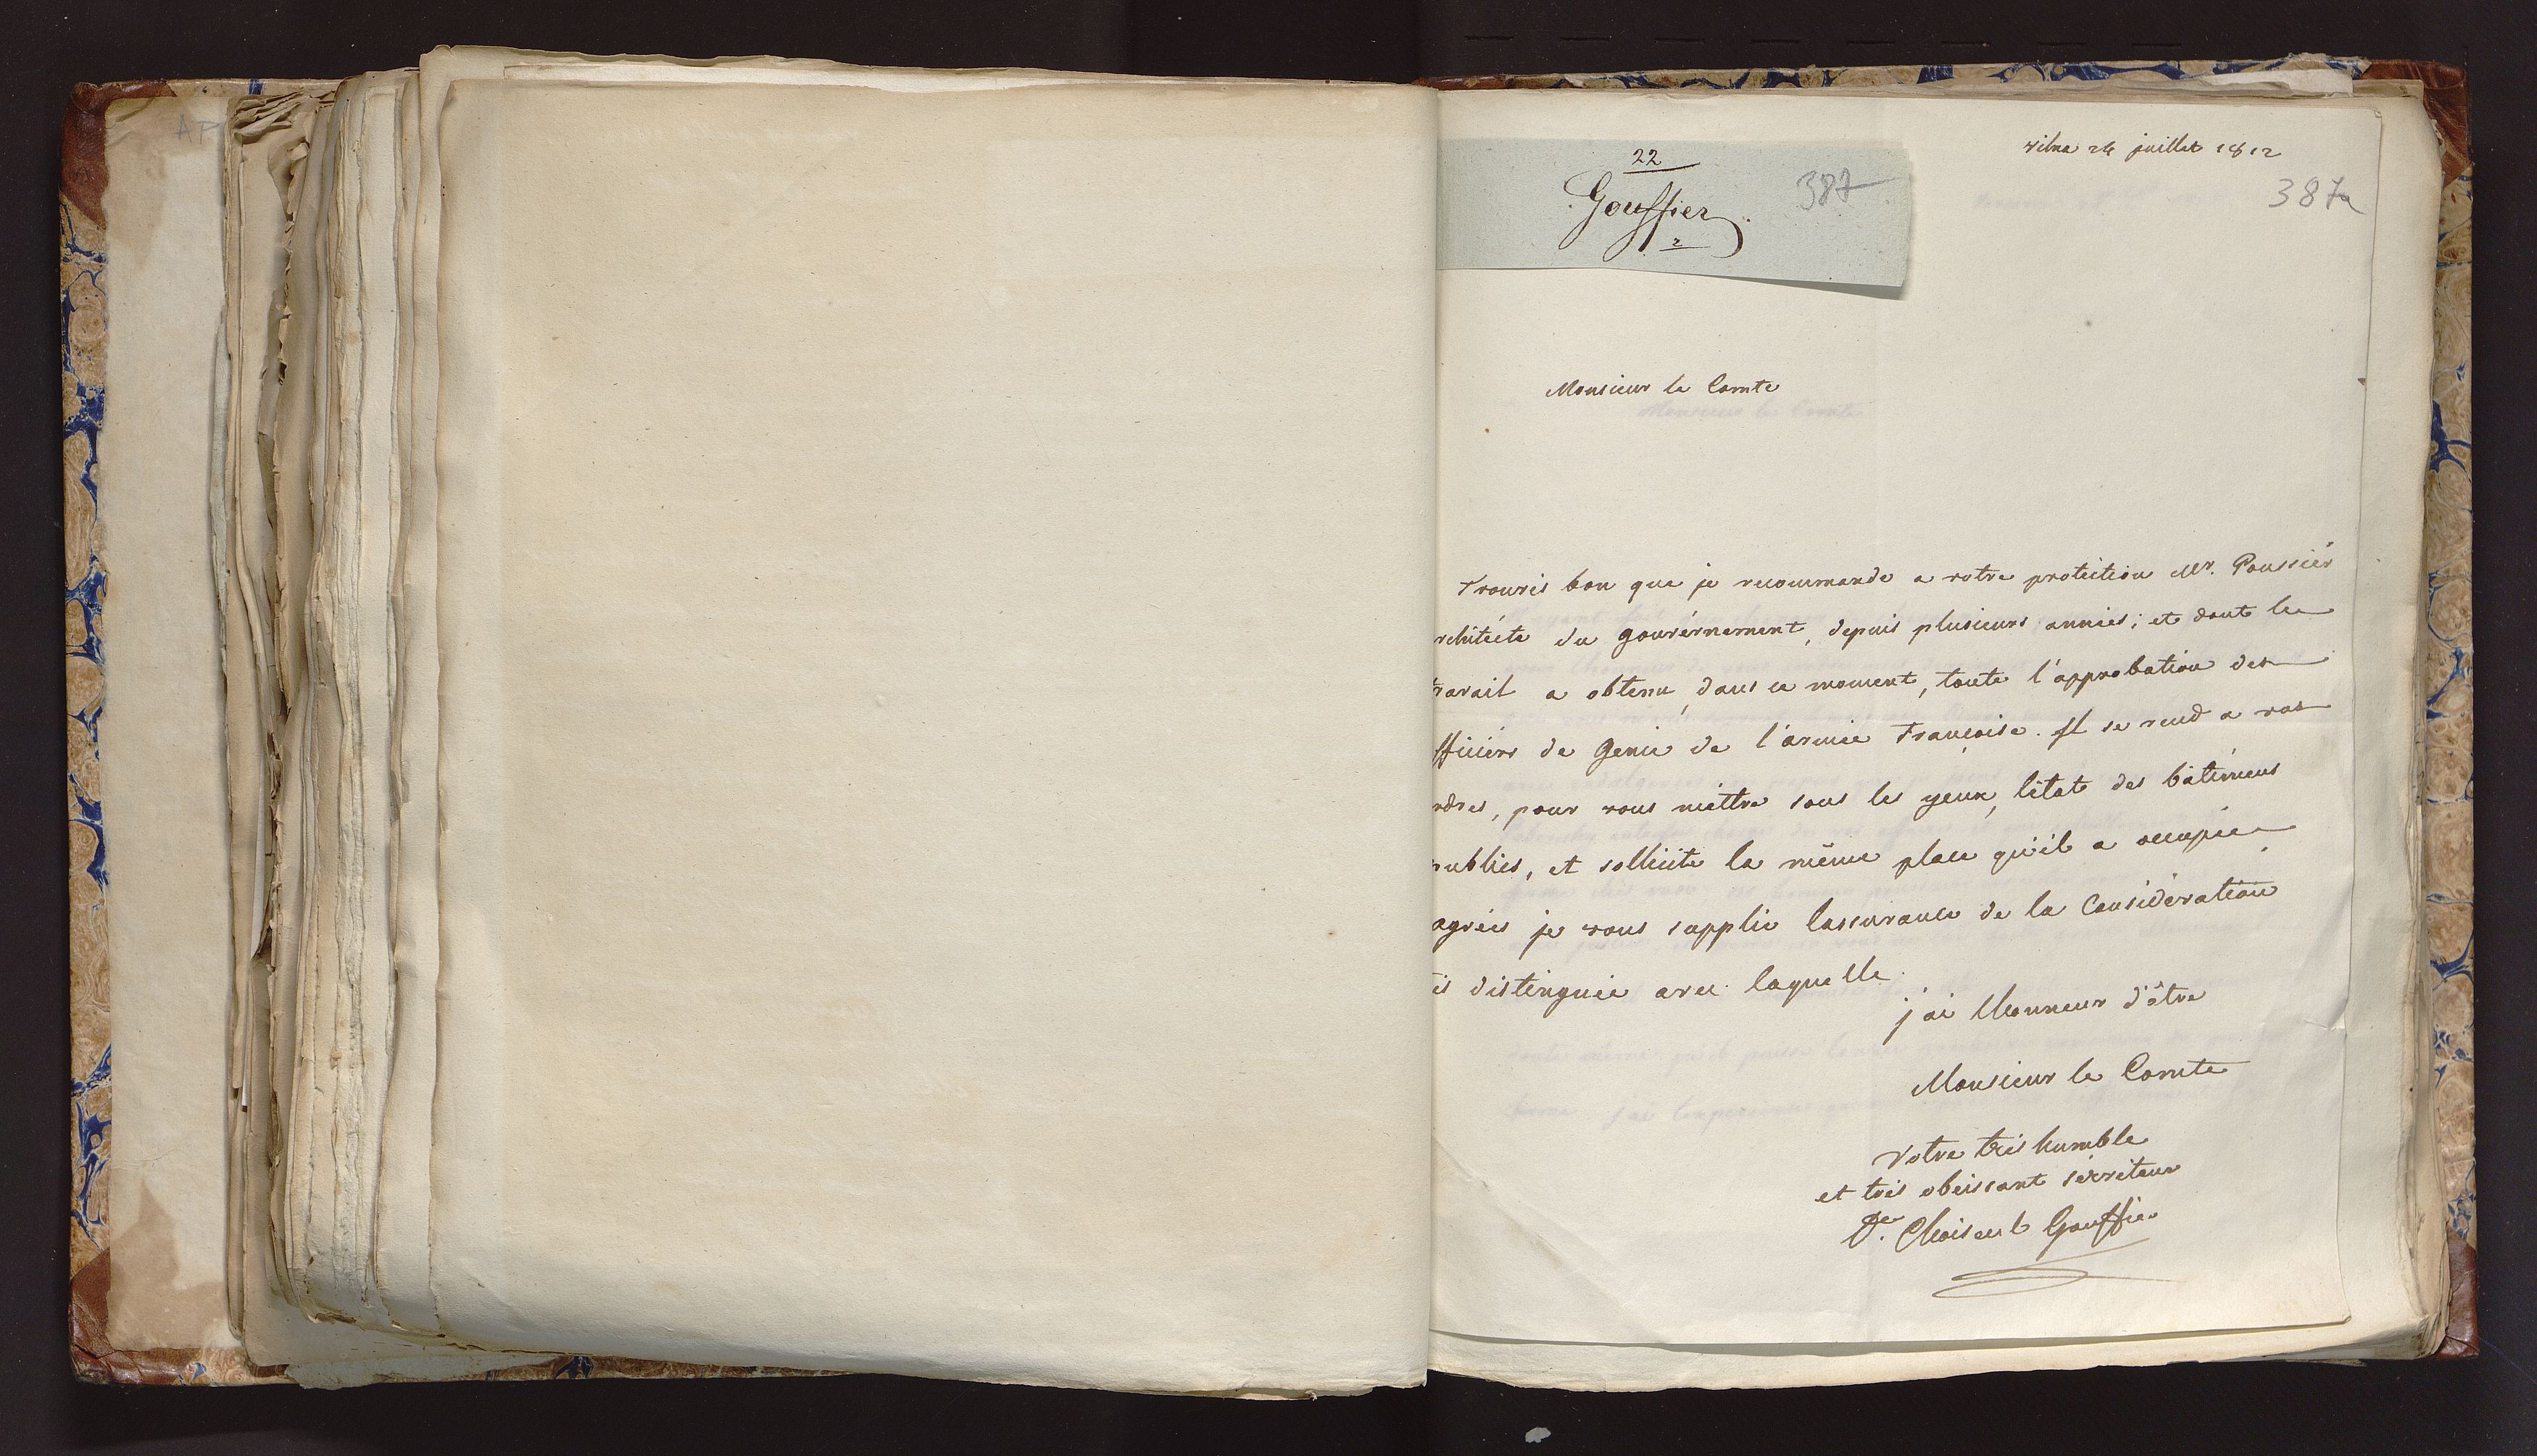 22
Gouffier
2
387
vilna 24 juillet 1812
387a
Monsieur le Comte
Trouvés bon que je recommande a votre protection Mr. Poussier
rchitécte du gouvérnement, depuis plusieurs années; et dont le
travail a obtenu, dans ce moment, toute l'approbation des
fficiérs de Genie de l'armée Françoise. Il se rend a vos
rdres, pour vous méttre sous les yeux, létat des bâtimens
publics, et sollicite la même place qu'il a occupée.
agréés je vous supplie lassurance de la Considération
és distinguée avec laquelle
j'ai lhonneur d'être
Monsieur le Comte
Votre très humble
et très obéissant sérviteur
Choiseul Gouffier